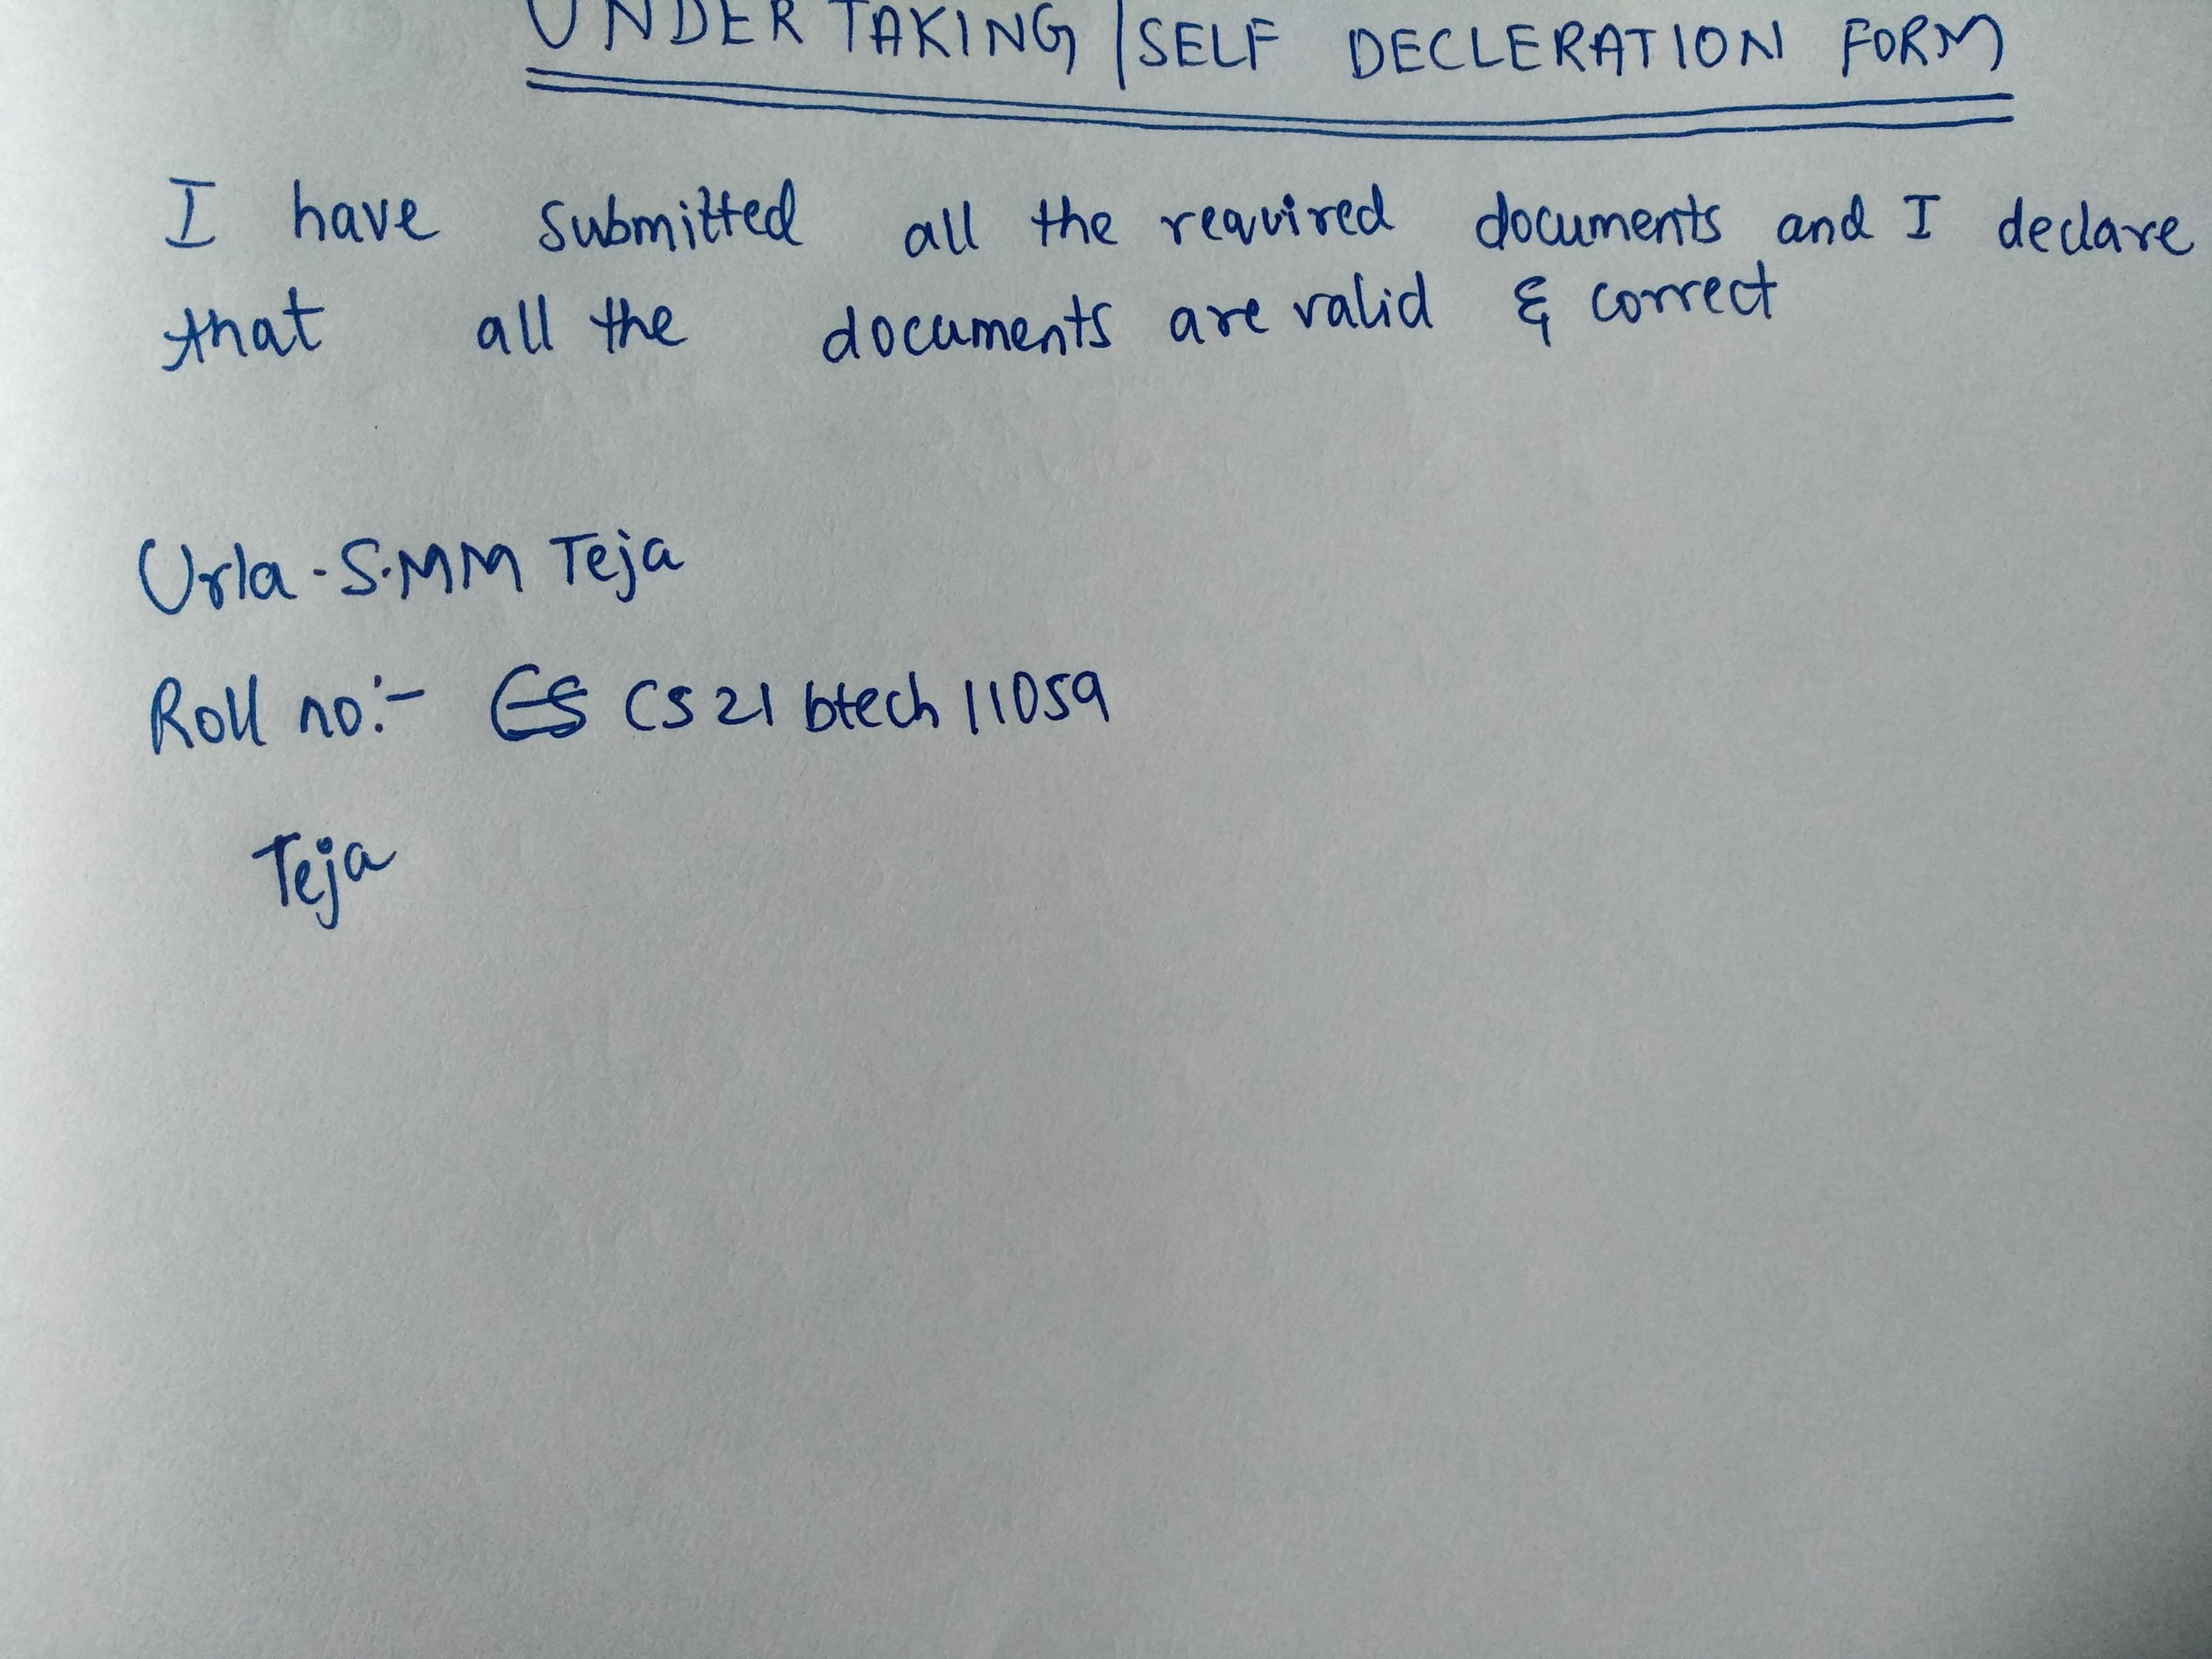 UNDER TAKING | SELF DECLERATION FORM
I have submitted all the required documents and I declare
that all the documents are valid & correct
Urla.S.MM Teja
Roll no:- CS CS21 btech 11059
Teja